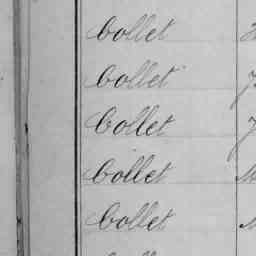 Collet
Collet
Collet
Collet
Collet